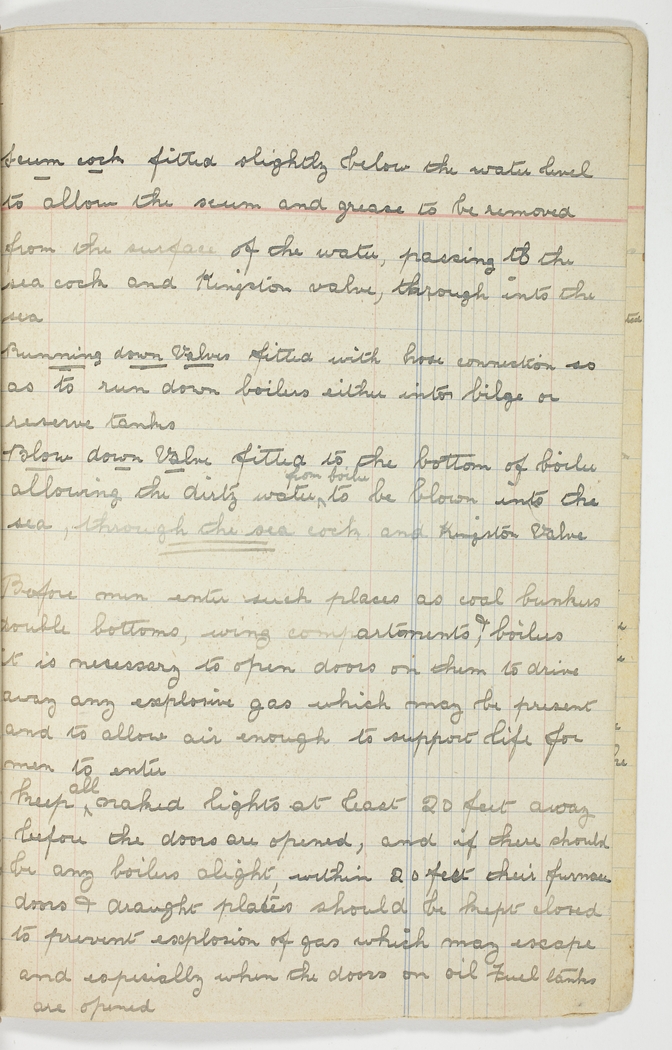 Scum cock fitted slightly below the water level
to allow the scum and grease to be removed
from the surface of the water, passing to the
sea cock and Kingston valve, through into the
sea
Running down Valves fitted with hose connection so
as to run down boilers either into bilge or
reserve tanks
Blow down Valve fitted to the bottom of boiler
allowing the dirty water from boiler to be blown into the
sea, through the sea cock and Kingston Valve
Before men enter such places as coal bunkers
double bottoms, wing compartments, & boilers
it is necessary to open doors on them to drive
away any explosive gas which may be present
and to allow air enough to support life for
men to enter
keep all naked lights at least 20 feet away
before the doors are opened, and if there should
be any boilers alight, within 20 feet their furnace
doors & draught plates should be kept closed
to prevent explosion of gas which may escape
and especially when the doors on oil Fuel tanks
are opened